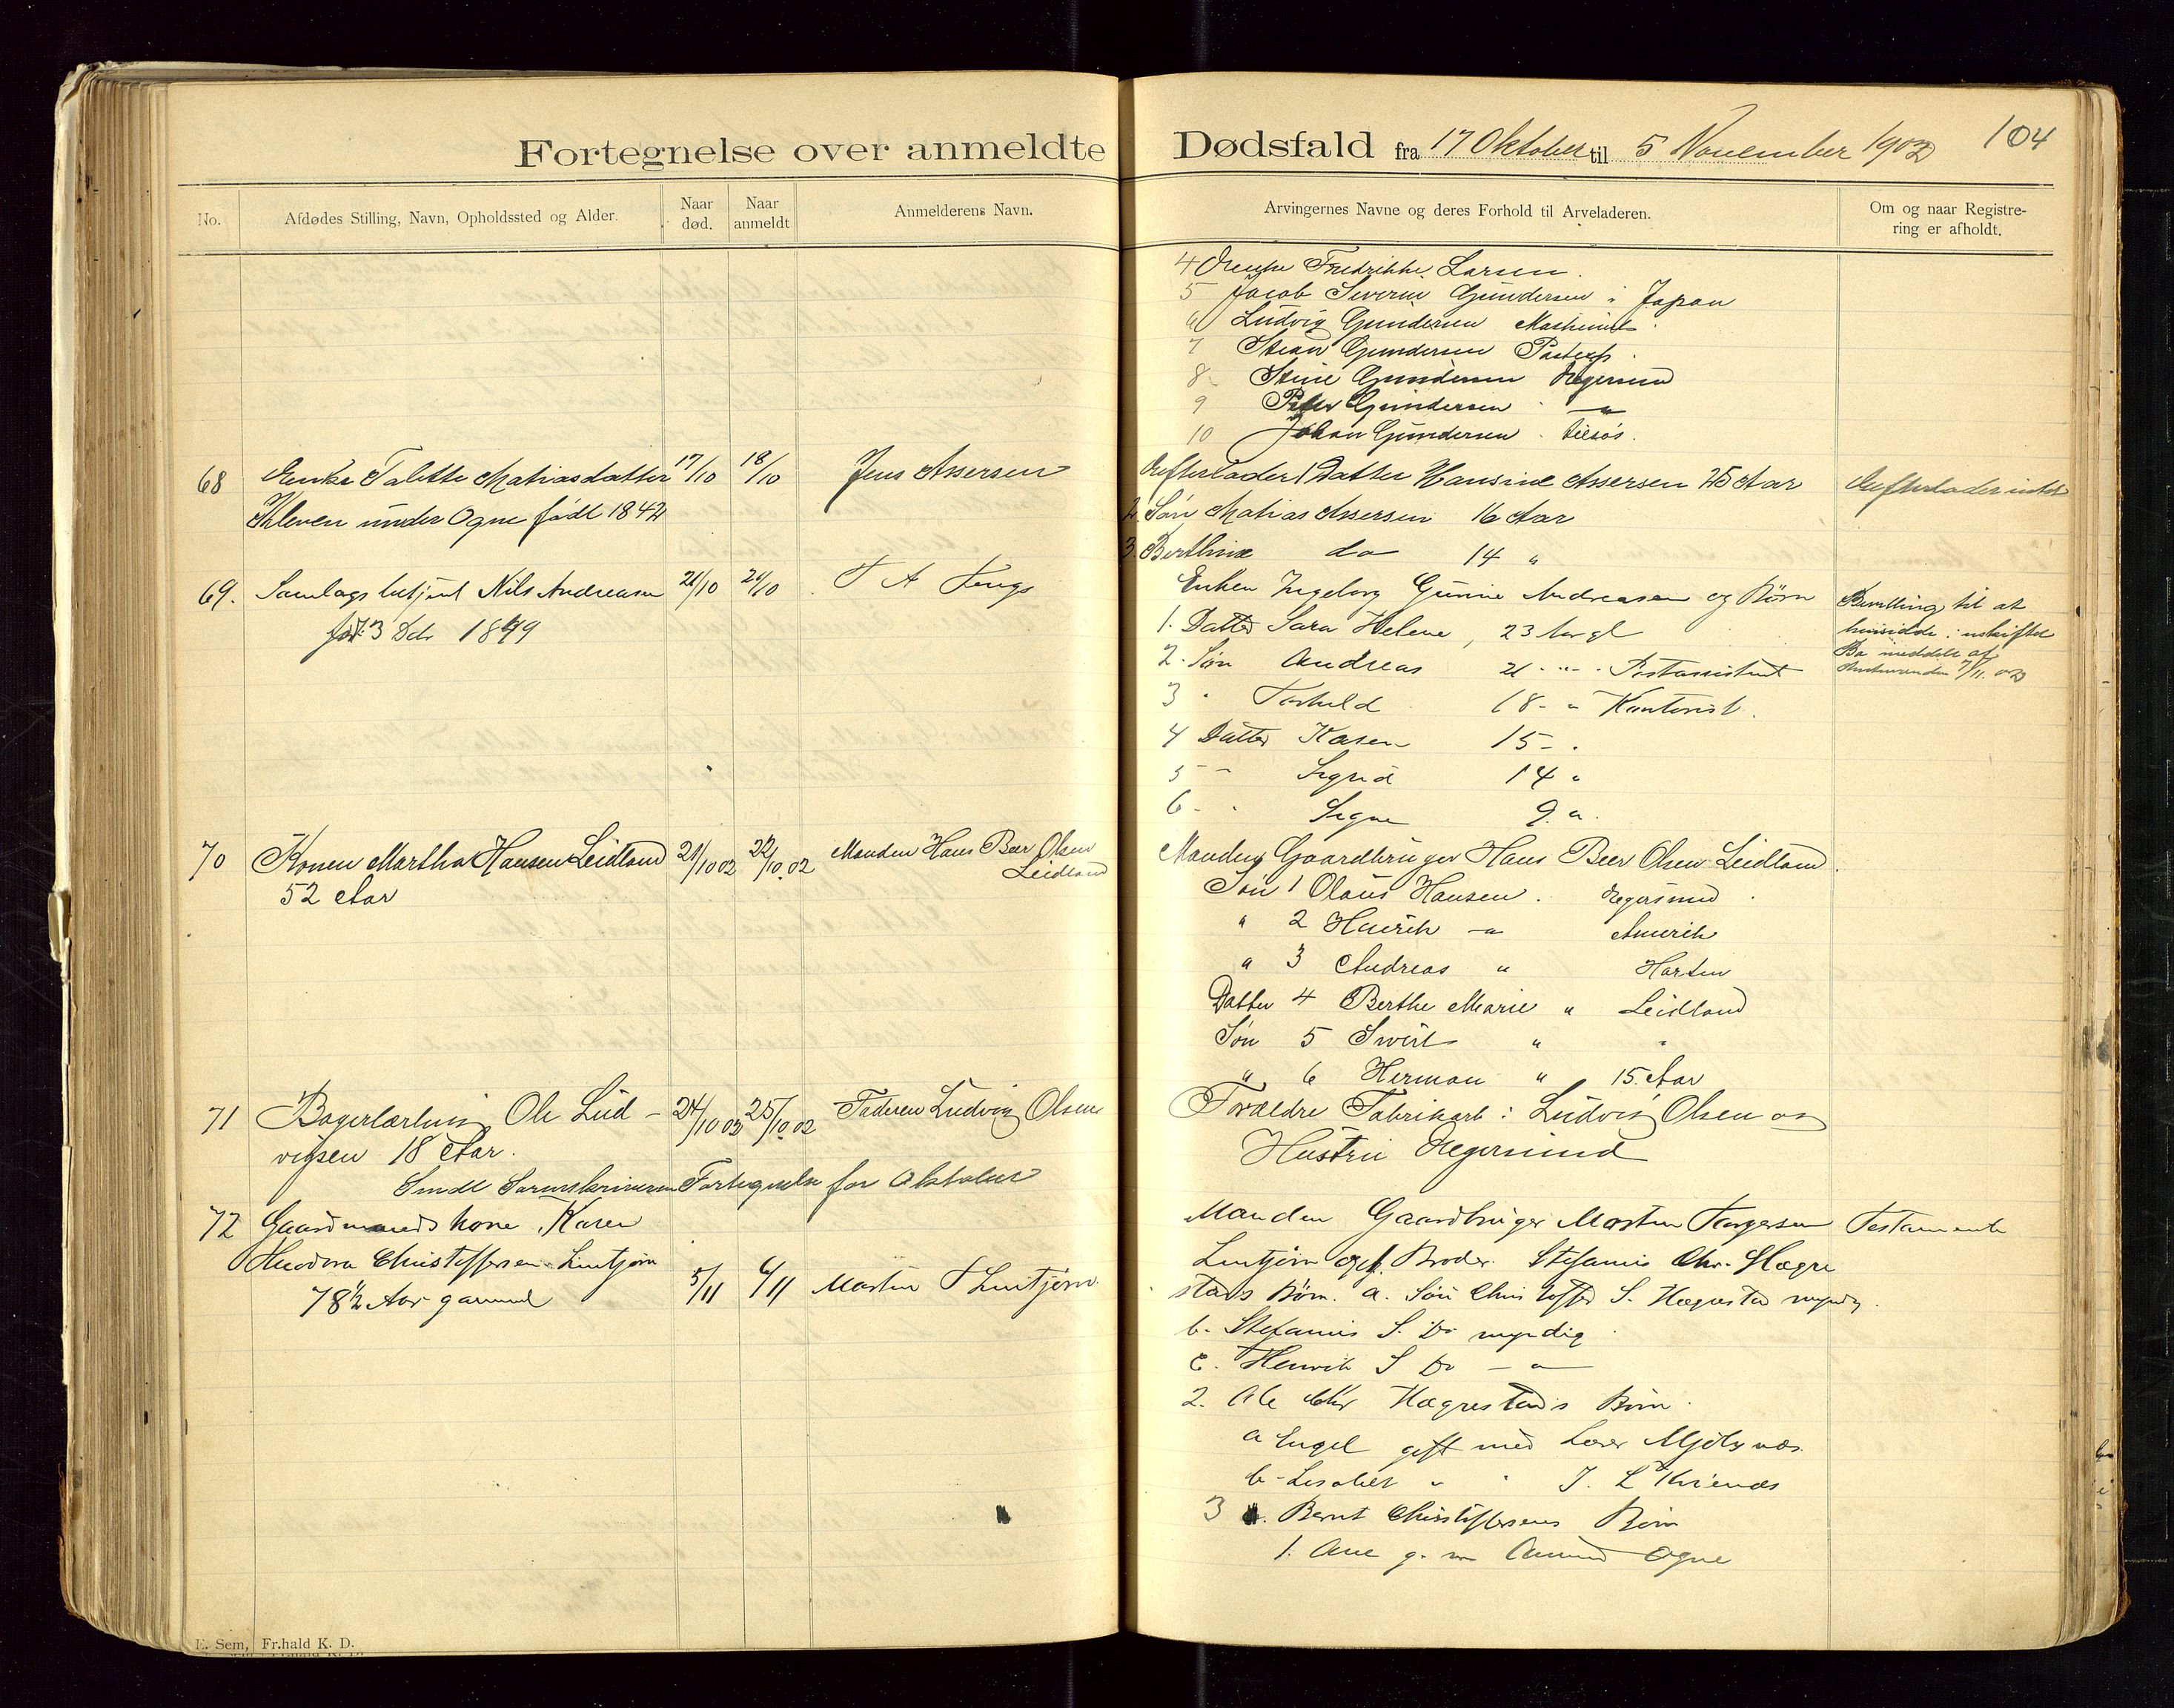 Fortegnelse over anmeldte Dødsfald fra 17 Oktober til 5 November 1902 104
No. Afdødes Stilling, Navn, Opholdssted og Alder. Naar død. Naar anmeldt Anmelderens Navn. Arvingernes Navne og deres Forhold til Arveladeren. Om og naar Registrering er afholdt.
4 Fredrikke Larsen.
5 Jacob Severin Gundersen i Japan
6 Ludvig Gundersen Maskinist
7 Gundersen
8 Stine Gundersen Egersund
9 Peter Gundersen - " -
10 Johan Gundersen tilsøs.
68 Enke Talette Matiasdatter 17/10 18/10 Jens Assersen Efterlader 1 Datter Hansine Assersen 25 Aar Efterlader intet
Kleven under Ogne født 1842
2. Søn Matias Assersen 16 Aar
3. Berthine do 14 "
69. Samlagsbetjent Nils Andreasen 21/10 21/10 T A Tengs Enken Ingeborg Gurine Andreasen og Børn Bevilling til at
født 3 Dcb 1849
1. Datter Sara Helene, 23 Aar gl hensidde i uskiftet
Bo meddelt af
2. Søn Andreas 21 - " - Postassistent 7/11. 02
3 " Torkeld 18 - " Kontorist.
4 Datter Karen 15 - "
5 - " Sigrid 14 "
6 - " Signe 9 "
70 Konen Martha Hansen Leidland 21/10 02 22/10.02 Manden Hans Beer Olsen
Leidland
52 Aar
Manden Gaardbruger Hans Beer Olsen Leidland.
Søn 1 Olaus Hansen. Egersund
" 2 Henrik - " Amerik
" 3 Andreas "
Datter 4 Berthe Marie " Leidland
Søn 5 Sivert " "
" 6 Herman " 15 Aar
71 Bagerlærling Ole Lud- 24/10 02 25/10.02 Faderen Ludvig Olsen Forældre Fabrikarb: Ludvig Olsen og
vigsen 18 Aar. Hustru Egersund
Sendt Sorenskriveren Fortegnelse for Oktober
72 Gaardmandskone Karen Manden Gaardbruger Morten Torgersen Testamente
Theodora Christoffersen Lintjørn
78 1/2 Aar gammel 5/11 6/11 Morten T Lintjørn
Lintjørn Broder Stefanus Chr. Hægre
stads Børn. a. Søn Christoffer S. Hægrestad myndig.
b. Stefanus S. Do myndig
c. Henrik S Do - " -
2. Ole Chr Hægrestads Børn.
a Engel gift med Mjølsnæs.
b - Lisabet " " J. L
3 Bernt Christoffersens Børn
1. Ane g. m Ogne
E. Sem, Fr.hald K. D.